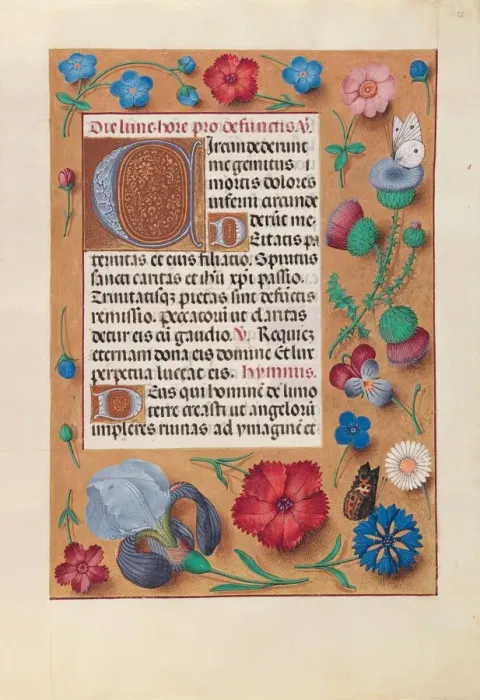 Die lune hore pro defunctis. V.
Circundederunt
me gemitus
mortis dolores
inferni circunde
derūt me.
Deitatis pa
ternitas et eius filiatio. Spiritus
sancti caritas et ihū xpī passio.
Trinitatisqz pietas sint defūctis
remissio. peccatoū ut claritas
detur eis cū gaudio. V. Requiez
eternam dona eis domine Et lux
perpetua luceat eis. hymnus.
Deus qui hominē de limo
terre creasti ut angelorū
impleres ruinas ad ymaginē et